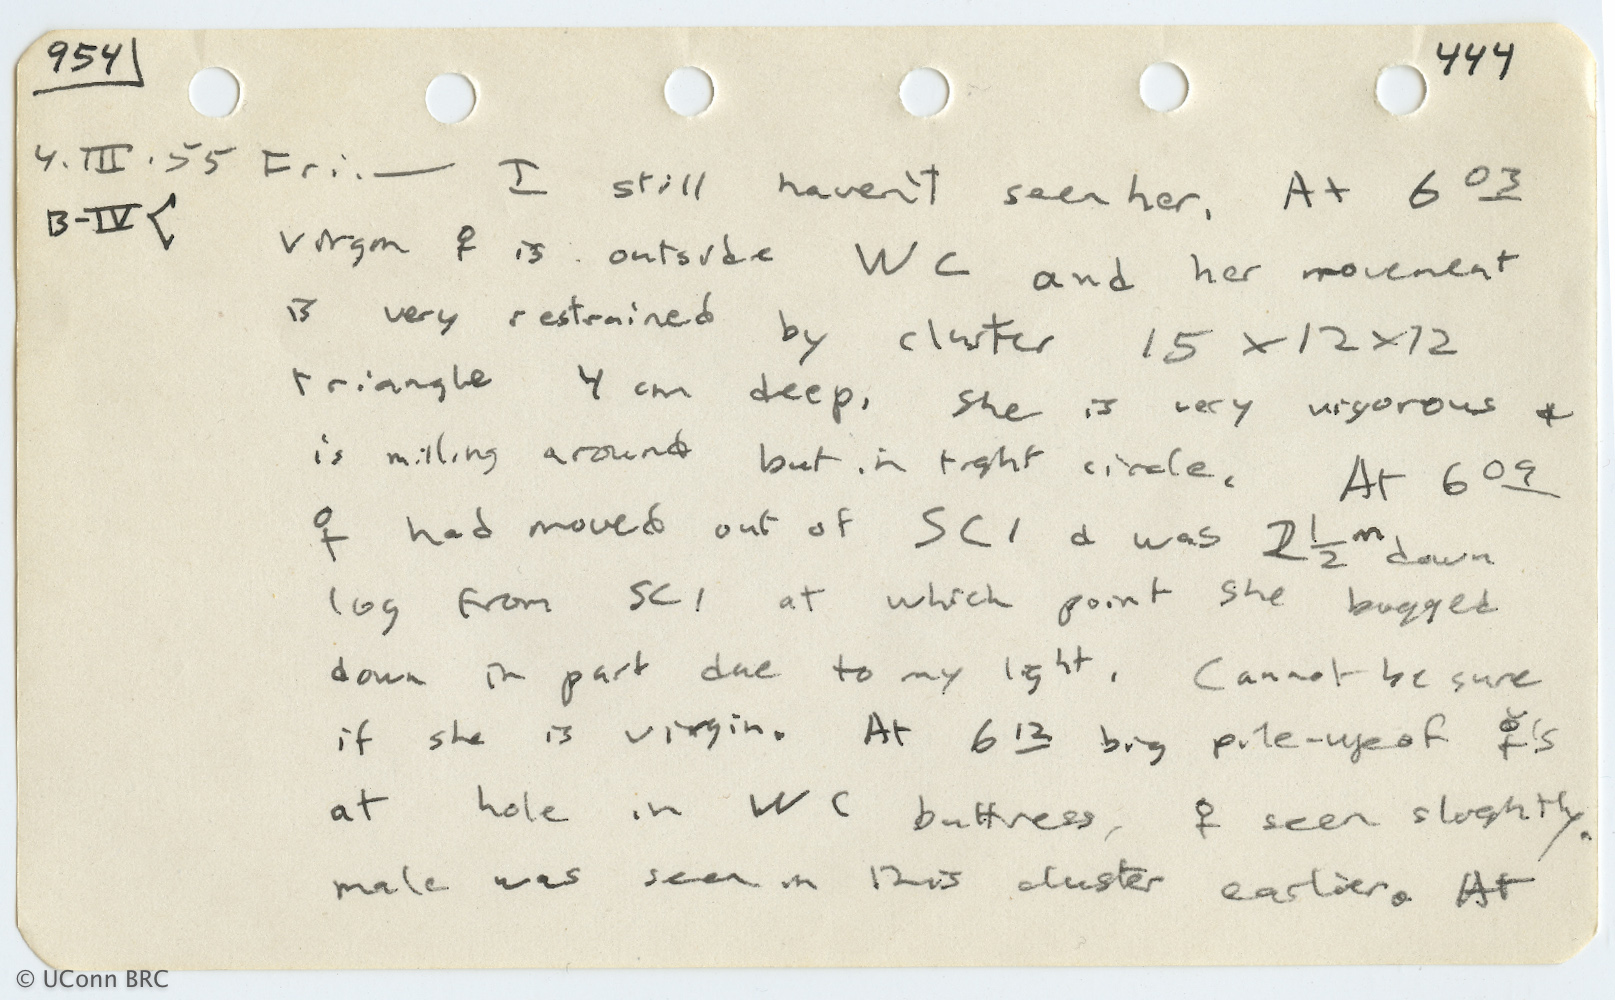 954 444
4.III.55 Fri.— I still haven't seen her. At 6 03
B-IV{ virgin ♀ is outside WC and her movement
is very restrained by cluster 15 x 12 x 12
triangle 4 cm deep. She is very vigorous &
is milling around but in tight circle. At 6 09
♀ had moved out of SC1 & was 2½ m down
log from SC1 at which point she bogged
down in part due to my light. Cannot be sure
if she is virgin. At 6 12 big pile-up of ☿'s
at hole in WC buttress, ♀ seen slightly.
male was seen in this cluster earlier. At
© UConn BRC